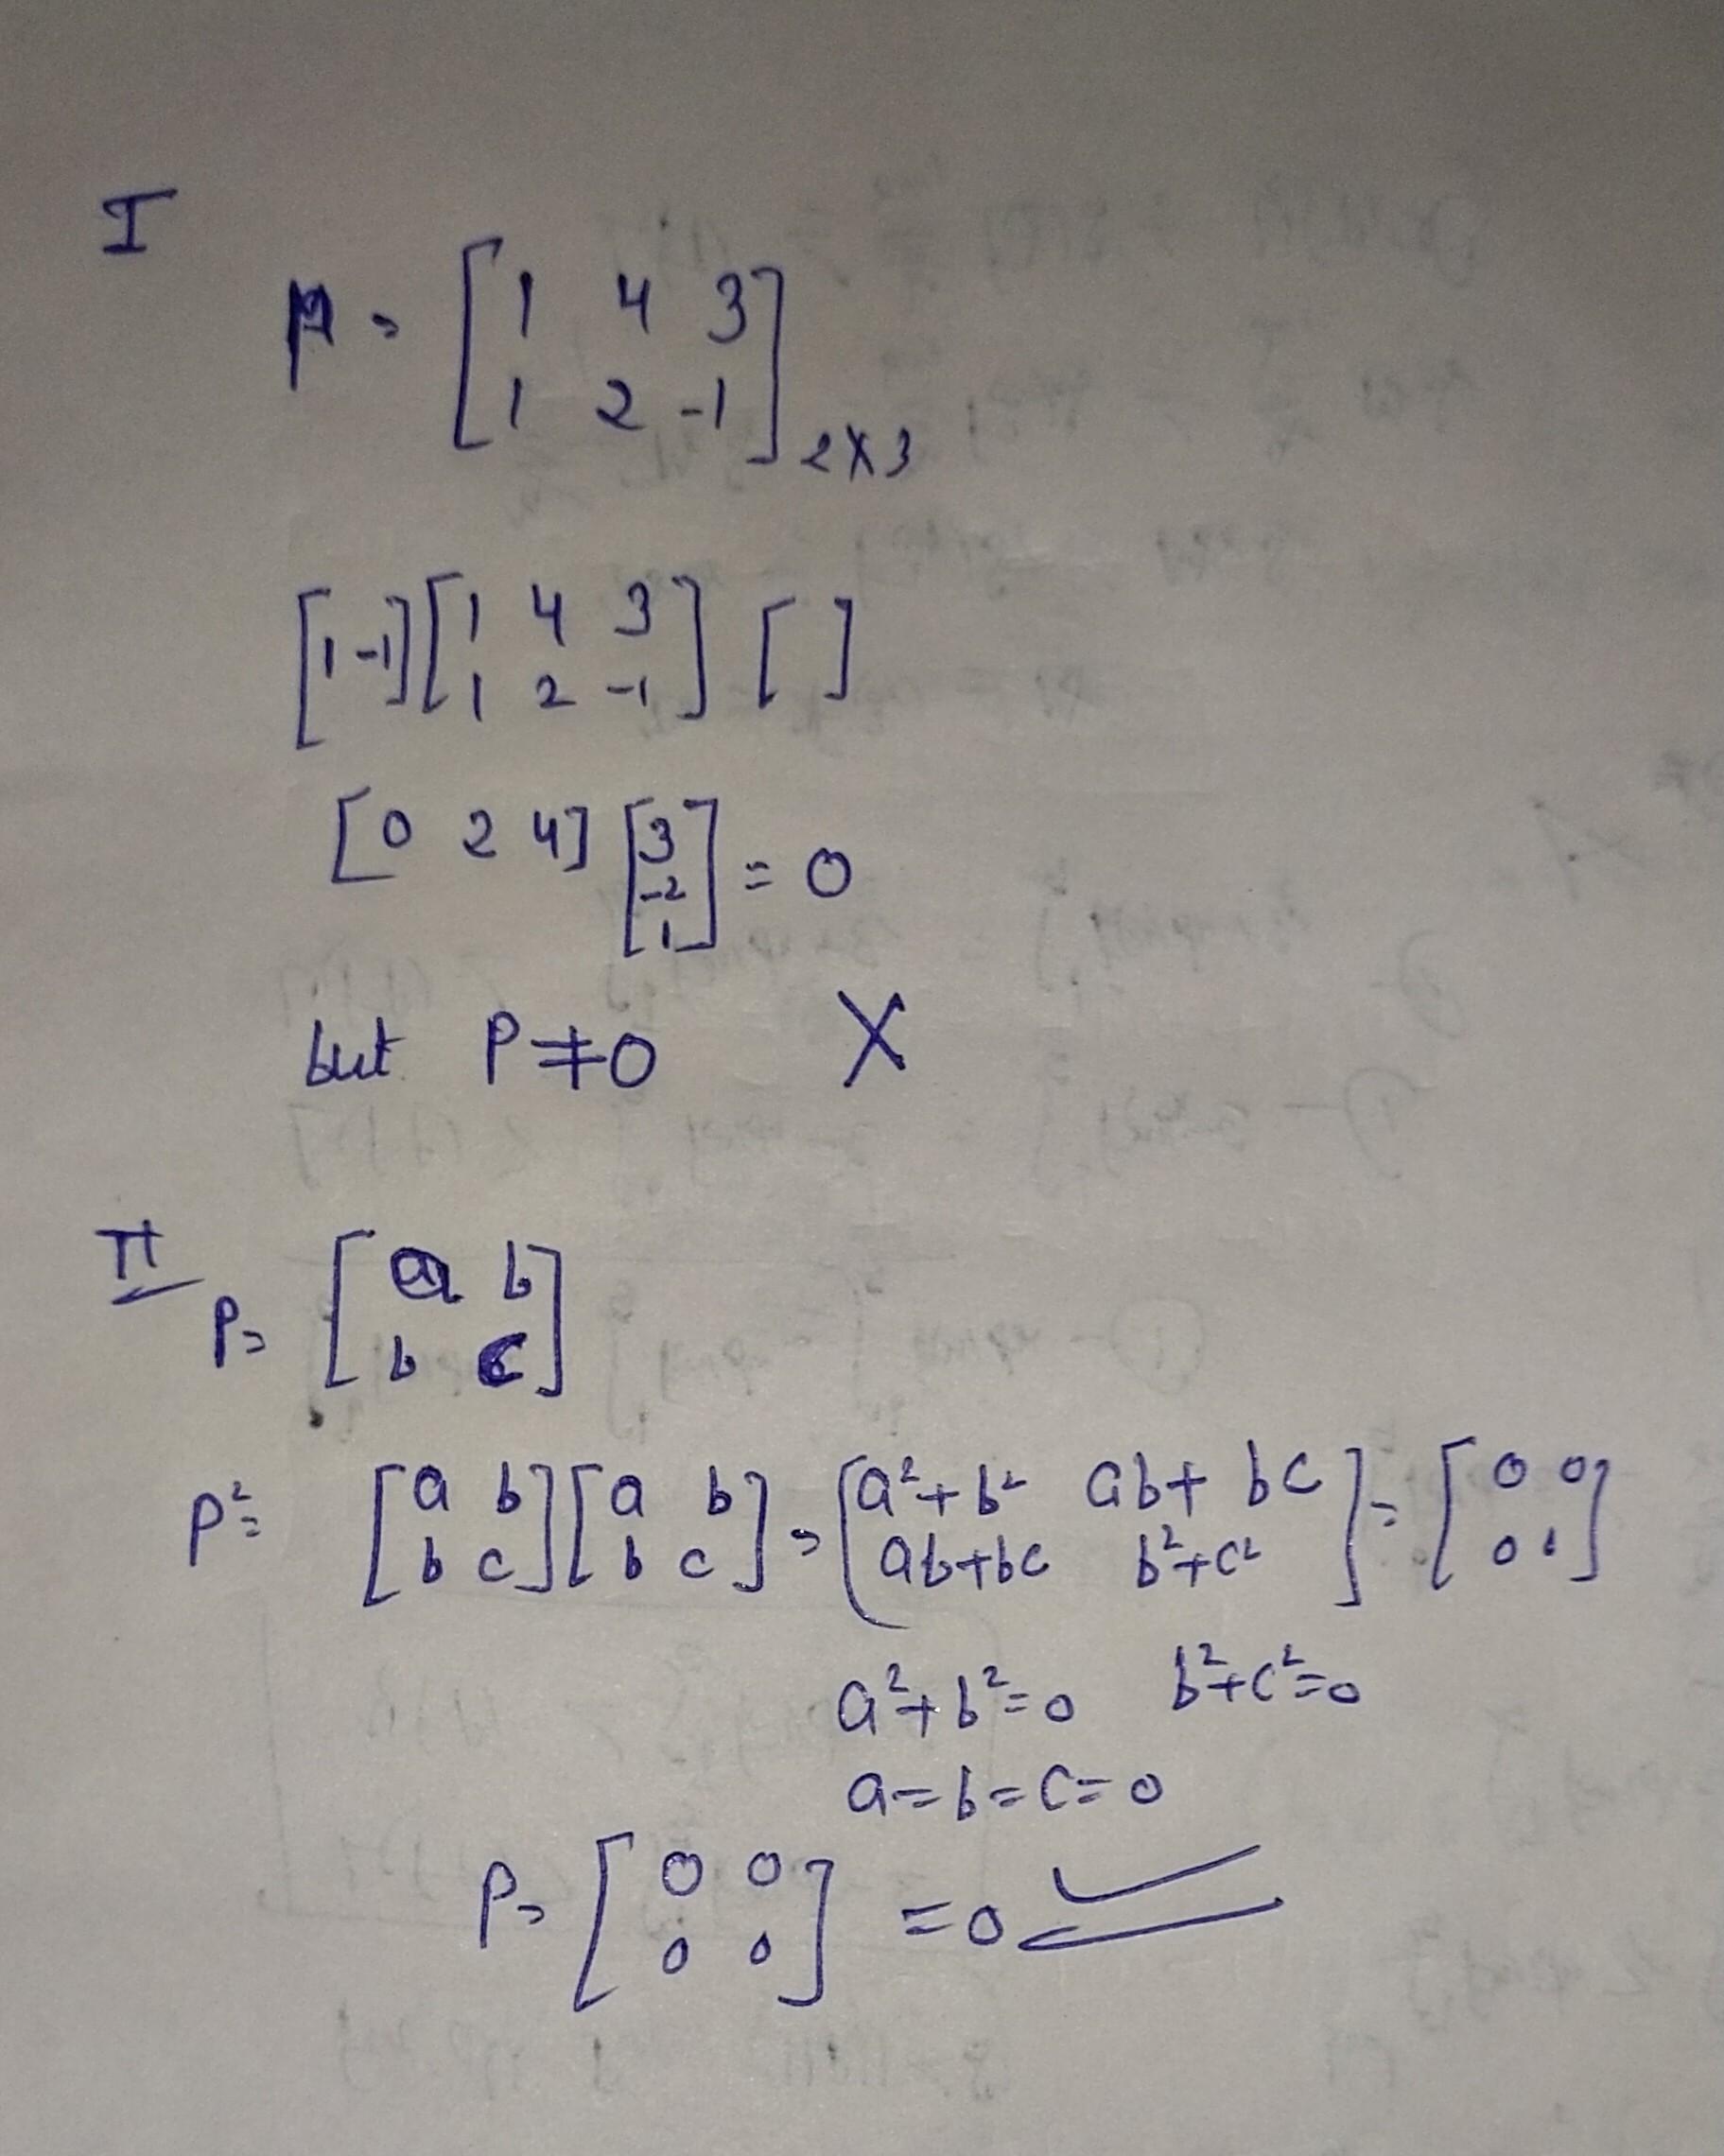 I
P = [1 4 3
1 2 -1] 2×3
[1 -1] [1 4 3
1 2 -1] [ ]
[0 2 4] [3
-2
1] = 0
but P ≠ 0 X
II
P = [a b
b c]
P² = [a b
b c] [a b
b c] = [a²+b² ab+bc
ab+bc b²+c²] = [0 0
0 0]
a²+b²=0 b²+c²=0
a=b=c=0
P = [0 0
0 0] = 0